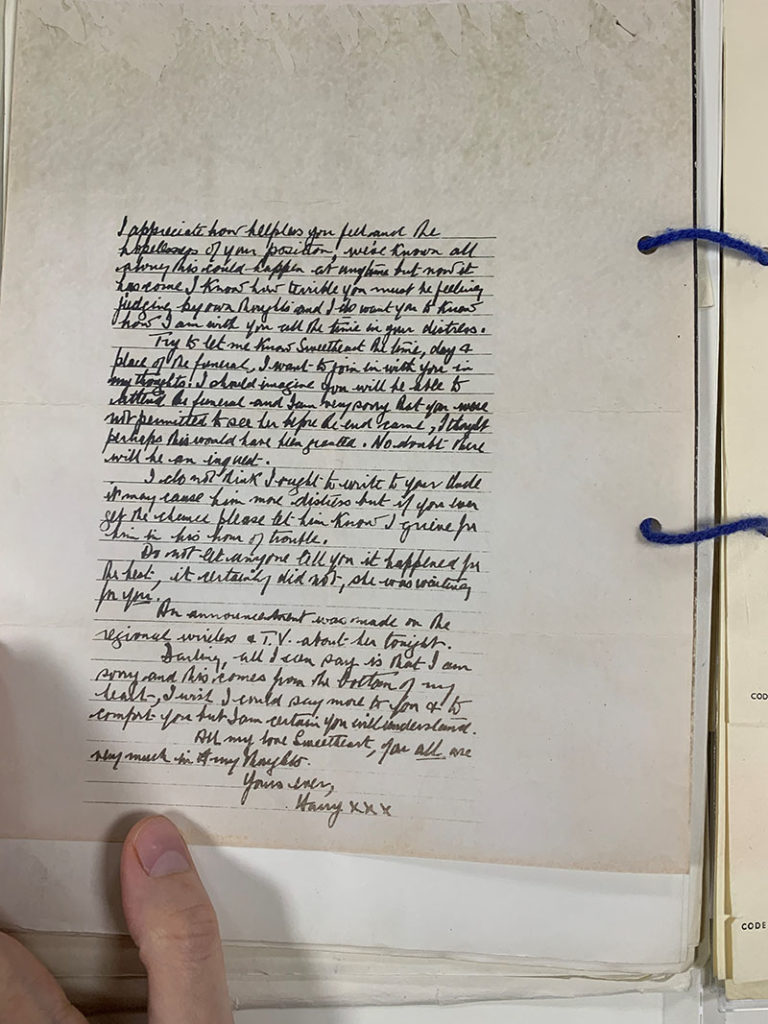 I appreciate how helpless you feel and the
hopelessness of your position, we've known all
along this could happen at anytime but now it
has come I know how terrible you must be feeling
judging by own thoughts and I do want you to know
how I am with you all the time in your distress.
Try to let me know Sweetheart the time, day &
place of the funeral, I want to join in with you in
my thoughts. I should imagine you will be able to
attend the funeral and I am very sorry that you were
not permitted to see her before the end came, I thought
perhaps this would have been granted. No doubt there
will be an inquest.
I do not think I ought to write to your Uncle
it may cause him more distress but if you ever
get the chance please let him know I grieve for
him in his hour of trouble.
Do not let anyone tell you it happened for
the best, it certainly did not, she was waiting
for you.
An announcement was made on the
regional wireless & T.V. about her tonight.
Darling, all I can say is that I am
sorry and this comes from the bottom of my
heart, I wish I could say more to you & to
comfort you but I am certain you will understand.
All my love Sweetheart, you all are
very much in my thoughts.
Yours ever,
Harry xxx
COD
CODE